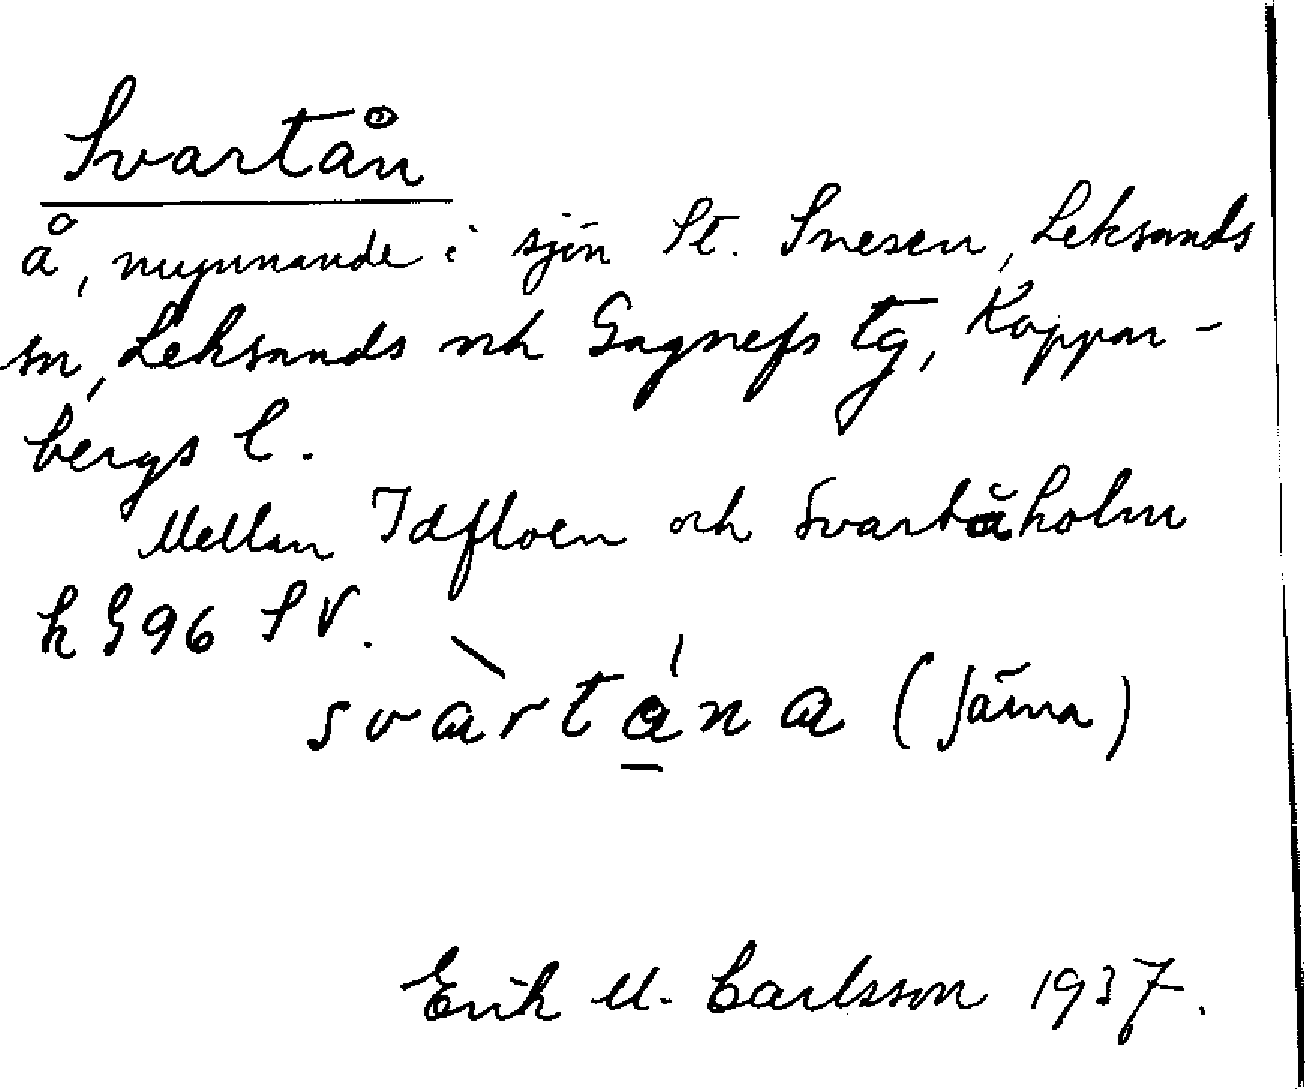 Svartån
å, mynnande i sjön St. Snesen, Leksands
sn, Leksands och Gagnefs tg, Koppar-
bergs l.
Mellan Idfloen och Svartåholm
k G96 SV.
svàrtána (Järna)
Erik M. Carlsson 1937.